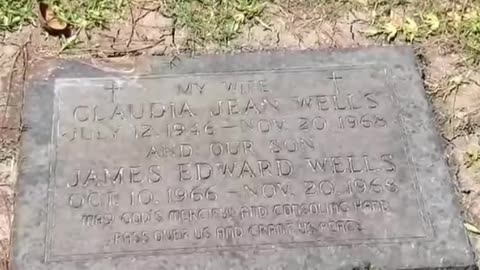 MY WIFE
CLAUDIA JEAN WELLS
JULY 12, 1946 — NOV. 20, 1968
AND OUR SON
JAMES EDWARD WELLS
OCT. 10, 1966 — NOV. 20, 1968
MAY GOD'S MERCIFUL AND CONSOLING HAND
PASS OVER US AND GRANT US PEACE